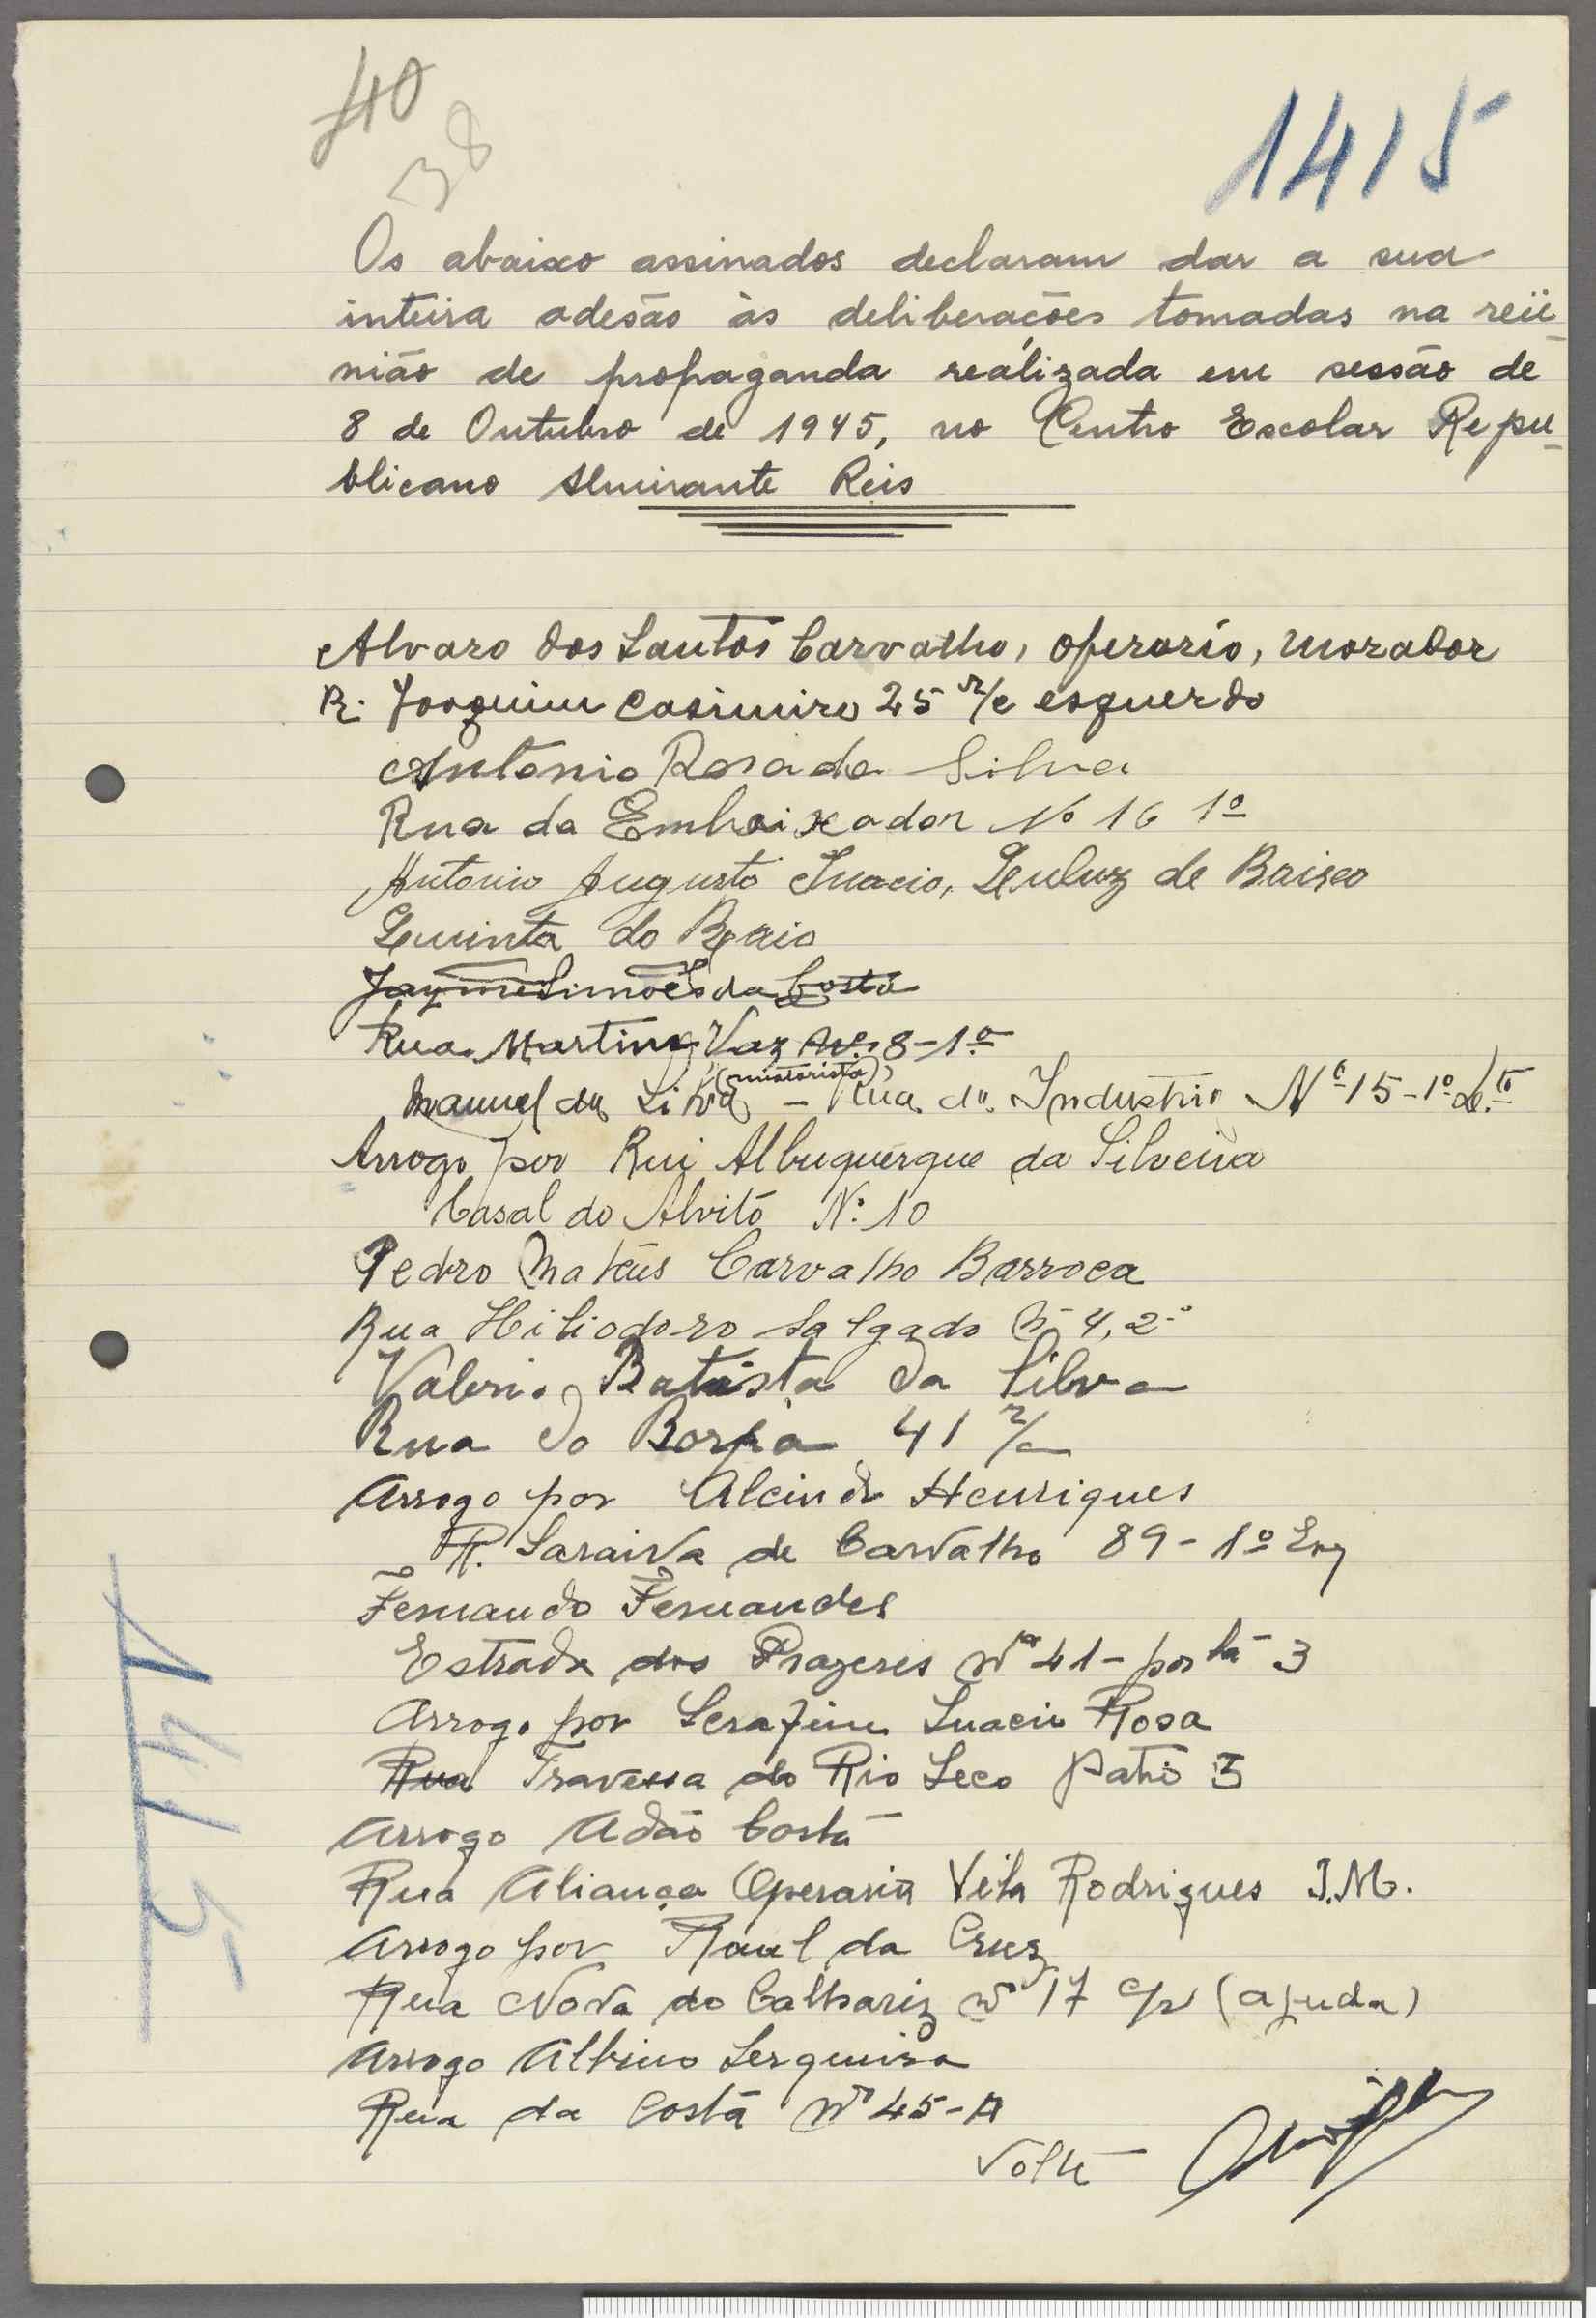 40
38
1415
Os abaixo assinados declaram dar a sua
inteira adesão às deliberações tomadas na reü-
nião de propaganda reálizada em sessão de
8 de Outubro de 1945, no Centro Escolar Repu-
blicano Almirante Reis
Alvaro dos Santos Carvalho, operario, morador
R. Joaquim Casimiro 25 r/c esquerdo
Antonio Rosa da Silva
Rua da Embaixador No 16 1º
Antonio Augusto Inacio, Queluz de Baixo
Quinta do
Jayme Simões da Costa
Rua Martins Vaz Nº 8-1º
(motorista)
Manuel da Silva - Rua da Industria Nº 15-1º D.to
Arrogo por Rui Albuquerque da Silveira
Casal do Alvito Nº 10
Pedro Mateüs Carvalho Barroca
Rua Hiliodoro Salgado Nº 4, 2º
Valerio Batista da Silva
Rua do Borja 41 r/c
Arrogo por Alcindo Henriques
R. Saraiva de Carvalho 89-1º Esq
Fernando Fernandes
Estrada dos Prazeres Nº 41- porta 3
Arrogo por Serafim Inacio Rosa
Rua Travessa do Rio Seco Patio 3
Arrogo Adão Costa
Rua Aliança Operaria Vila Rodrigues J.M.
Arrogo por Raul da Cruz
Rua Nova do Calhariz nº 17 c/v (ajuda)
Arrogo Albino Serqueira
Rua da Costa nº 45-A
Volte
1415